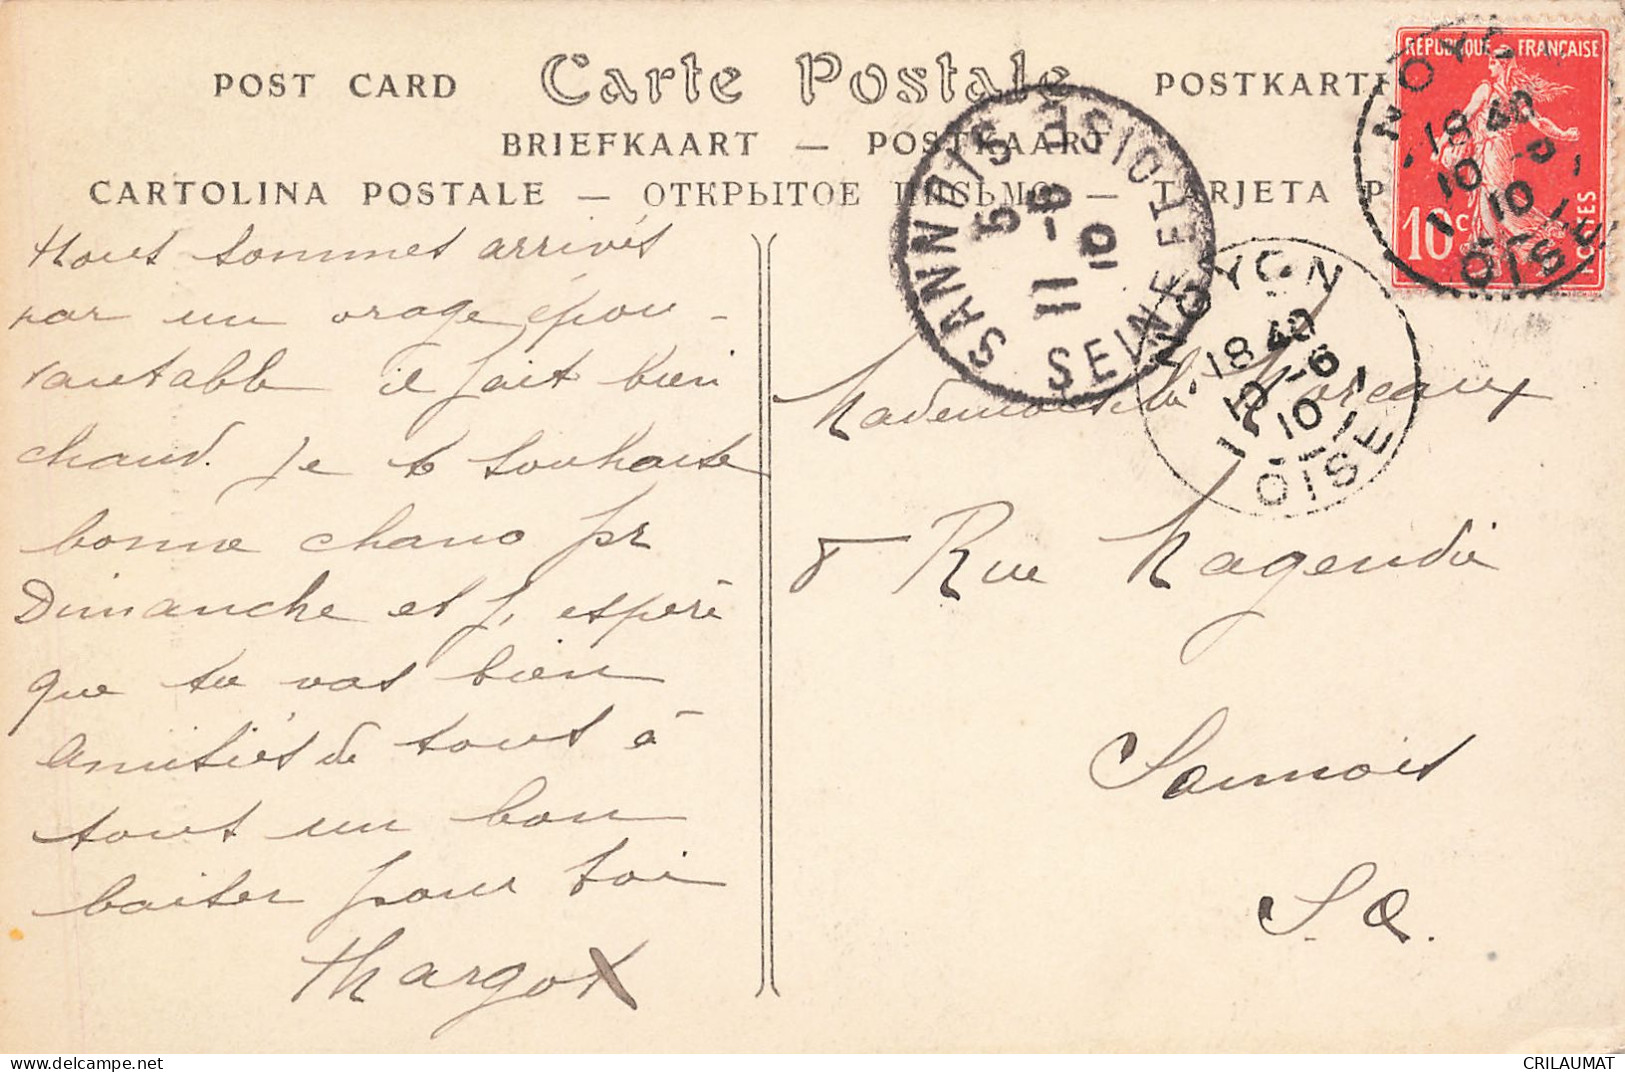 POST CARD Carte Postale POSTKARTE
BRIEFKAART — POSTKAART
CARTOLINA POSTALE — ОТКРЫТОЕ ПИСЬМО — TARJETA P
RÉPUBLIQUE FRANÇAISE
10c
POSTES
NOYON
18 40
10 -6
10
OISE
SANNOIS
SEINE ET OISE
5 5
11 -6
10
NOYON
18 40
10 -6
10
OISE
Nous sommes arrivés
par un orage épou-
vantable il fait bien
chaud. Je te souhaite
bonne chance pr
Dimanche et j'espère
que tu vas bien
Amitiés de tous à
tous un bon
baiser pour toi
Margot
Mademoiselle Moreaux
8 Rue Magendie
Sannois
S. O.
CRILAUMAT